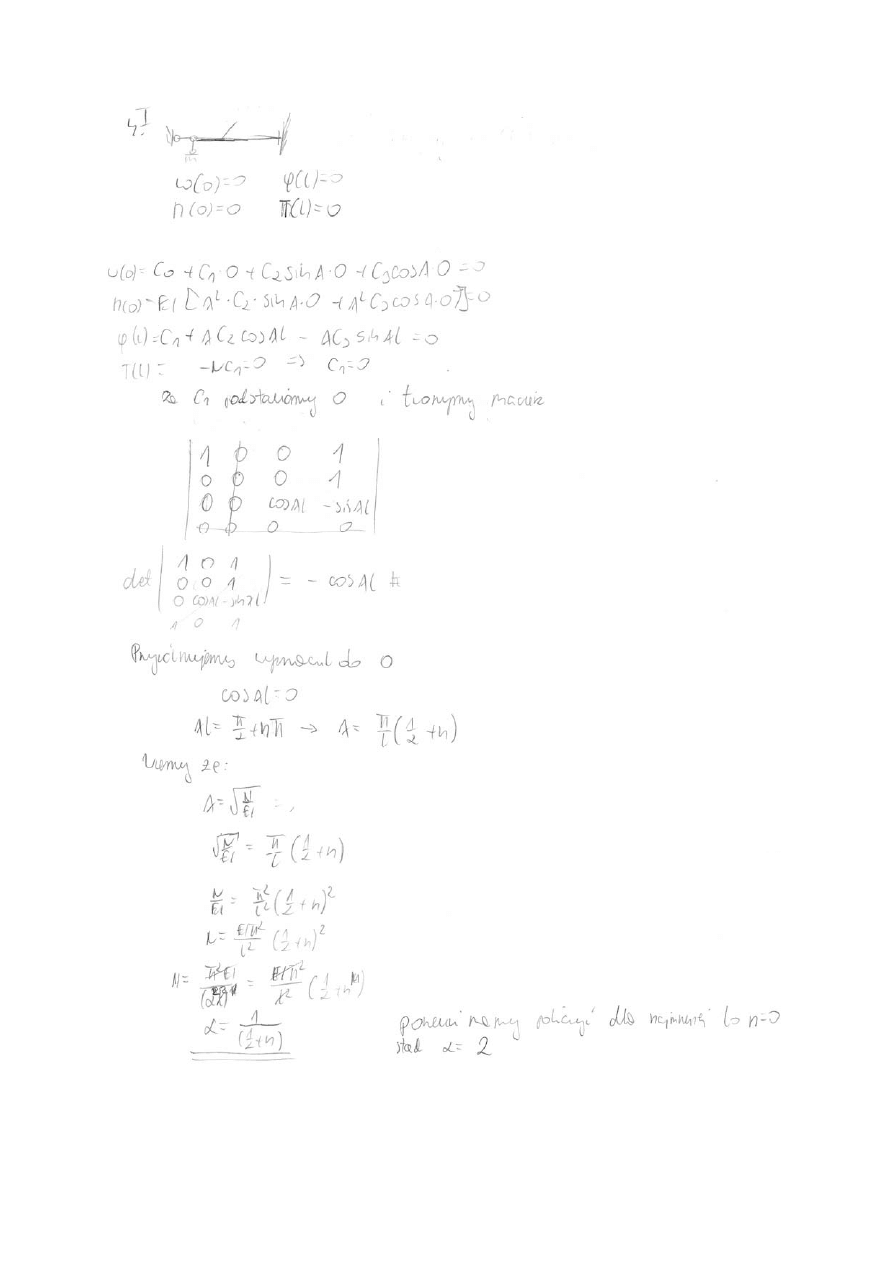 4.I
ω(0)=0 φ(l)=0
M(0)=0 T(l)=0
ω(0)= C0 + C1·0 + C2 sin λ·0 + C3 cos λ 0 = 0
M(0)= EI [λ²·C2·sin λ·0 + λ² C3 cos λ·0] = 0
φ(l)= C1 + λ C2 cos λl - λC3 sin λl = 0
T(l)= -NC1=0 => C1=0
za C1 podstawiamy 0 i tworzymy macierz
1 0 0 1
0 0 0 1
0 0 cosλl -sinλl
0 0 0 0
det | 1 0 1 | = - cosλl
0 0 1
0 cosλl -sinλl
1 0 1
Przyrównujemy wyznacznik do 0
cosλl=0
λl= π/2 + nπ → λ= π/l (1/2 + n)
Wiemy że:
λ= √(N/EI) =
√(N/EI) = π/l (1/2 + n)
N/EI = π²/l² (1/2 + n)²
N= EIπ²/l² (1/2 + n)²
N= π²EI/(αl)² = EIπ²/l² (1/2 + n)
α= 1/(1/2 + n) ponieważ mamy policzyć dla najmniejszej to n=0
stąd α= 2